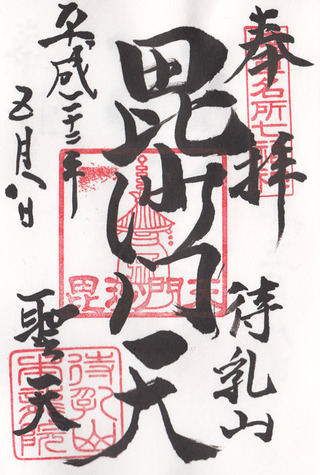 奉拝
待乳山
毘沙門天
毘沙門天
平成二十二年
五月八日
聖天
待乳山
本龍院